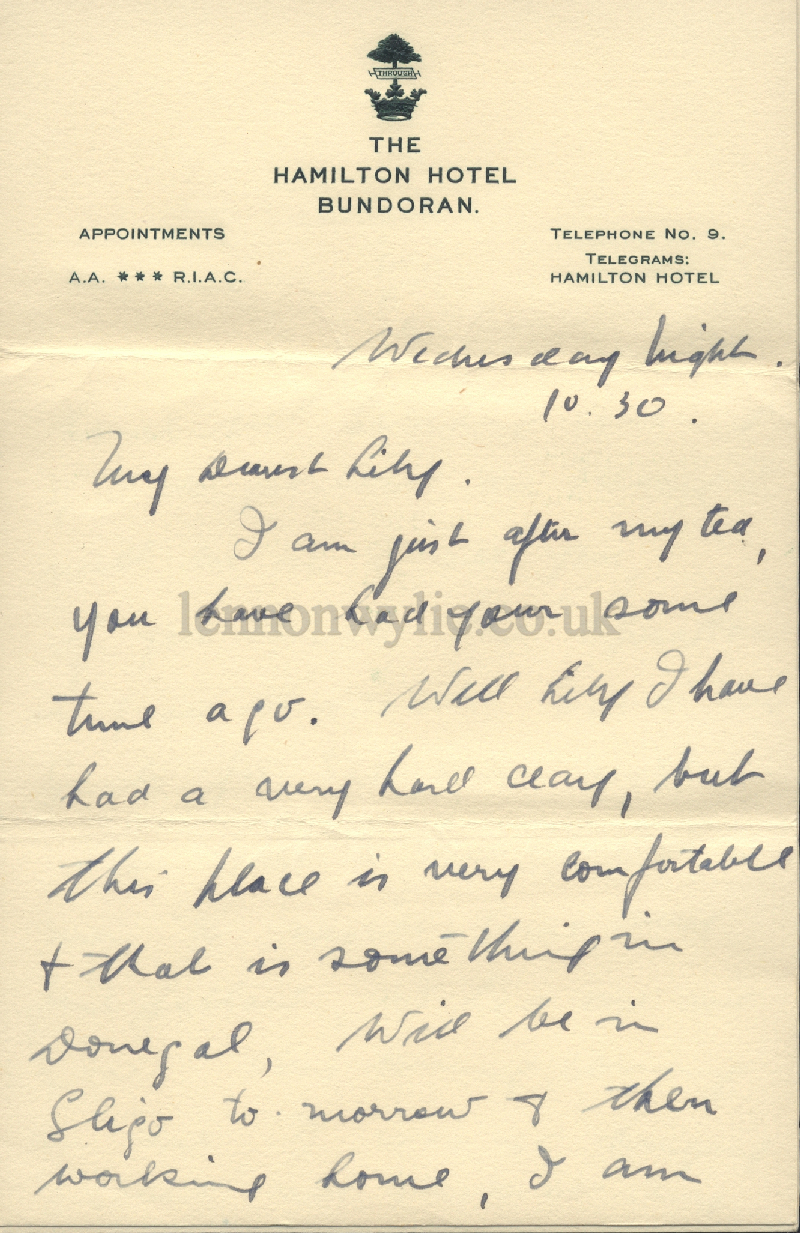 THROUGH
THE
HAMILTON HOTEL
BUNDORAN.
APPOINTMENTS
A.A. *** R.I.A.C.
TELEPHONE NO. 9.
TELEGRAMS:
HAMILTON HOTEL
Wednesday night.
10.30.
My Dearest Lily.
I am just after my tea,
you have had your some
time ago. Well Lily I have
had a very hard day, but
this place is very comfortable
+ that is something in
Donegal, Will be in
Sligo to-morrow & then
working home, I am
lennonwylie.co.uk